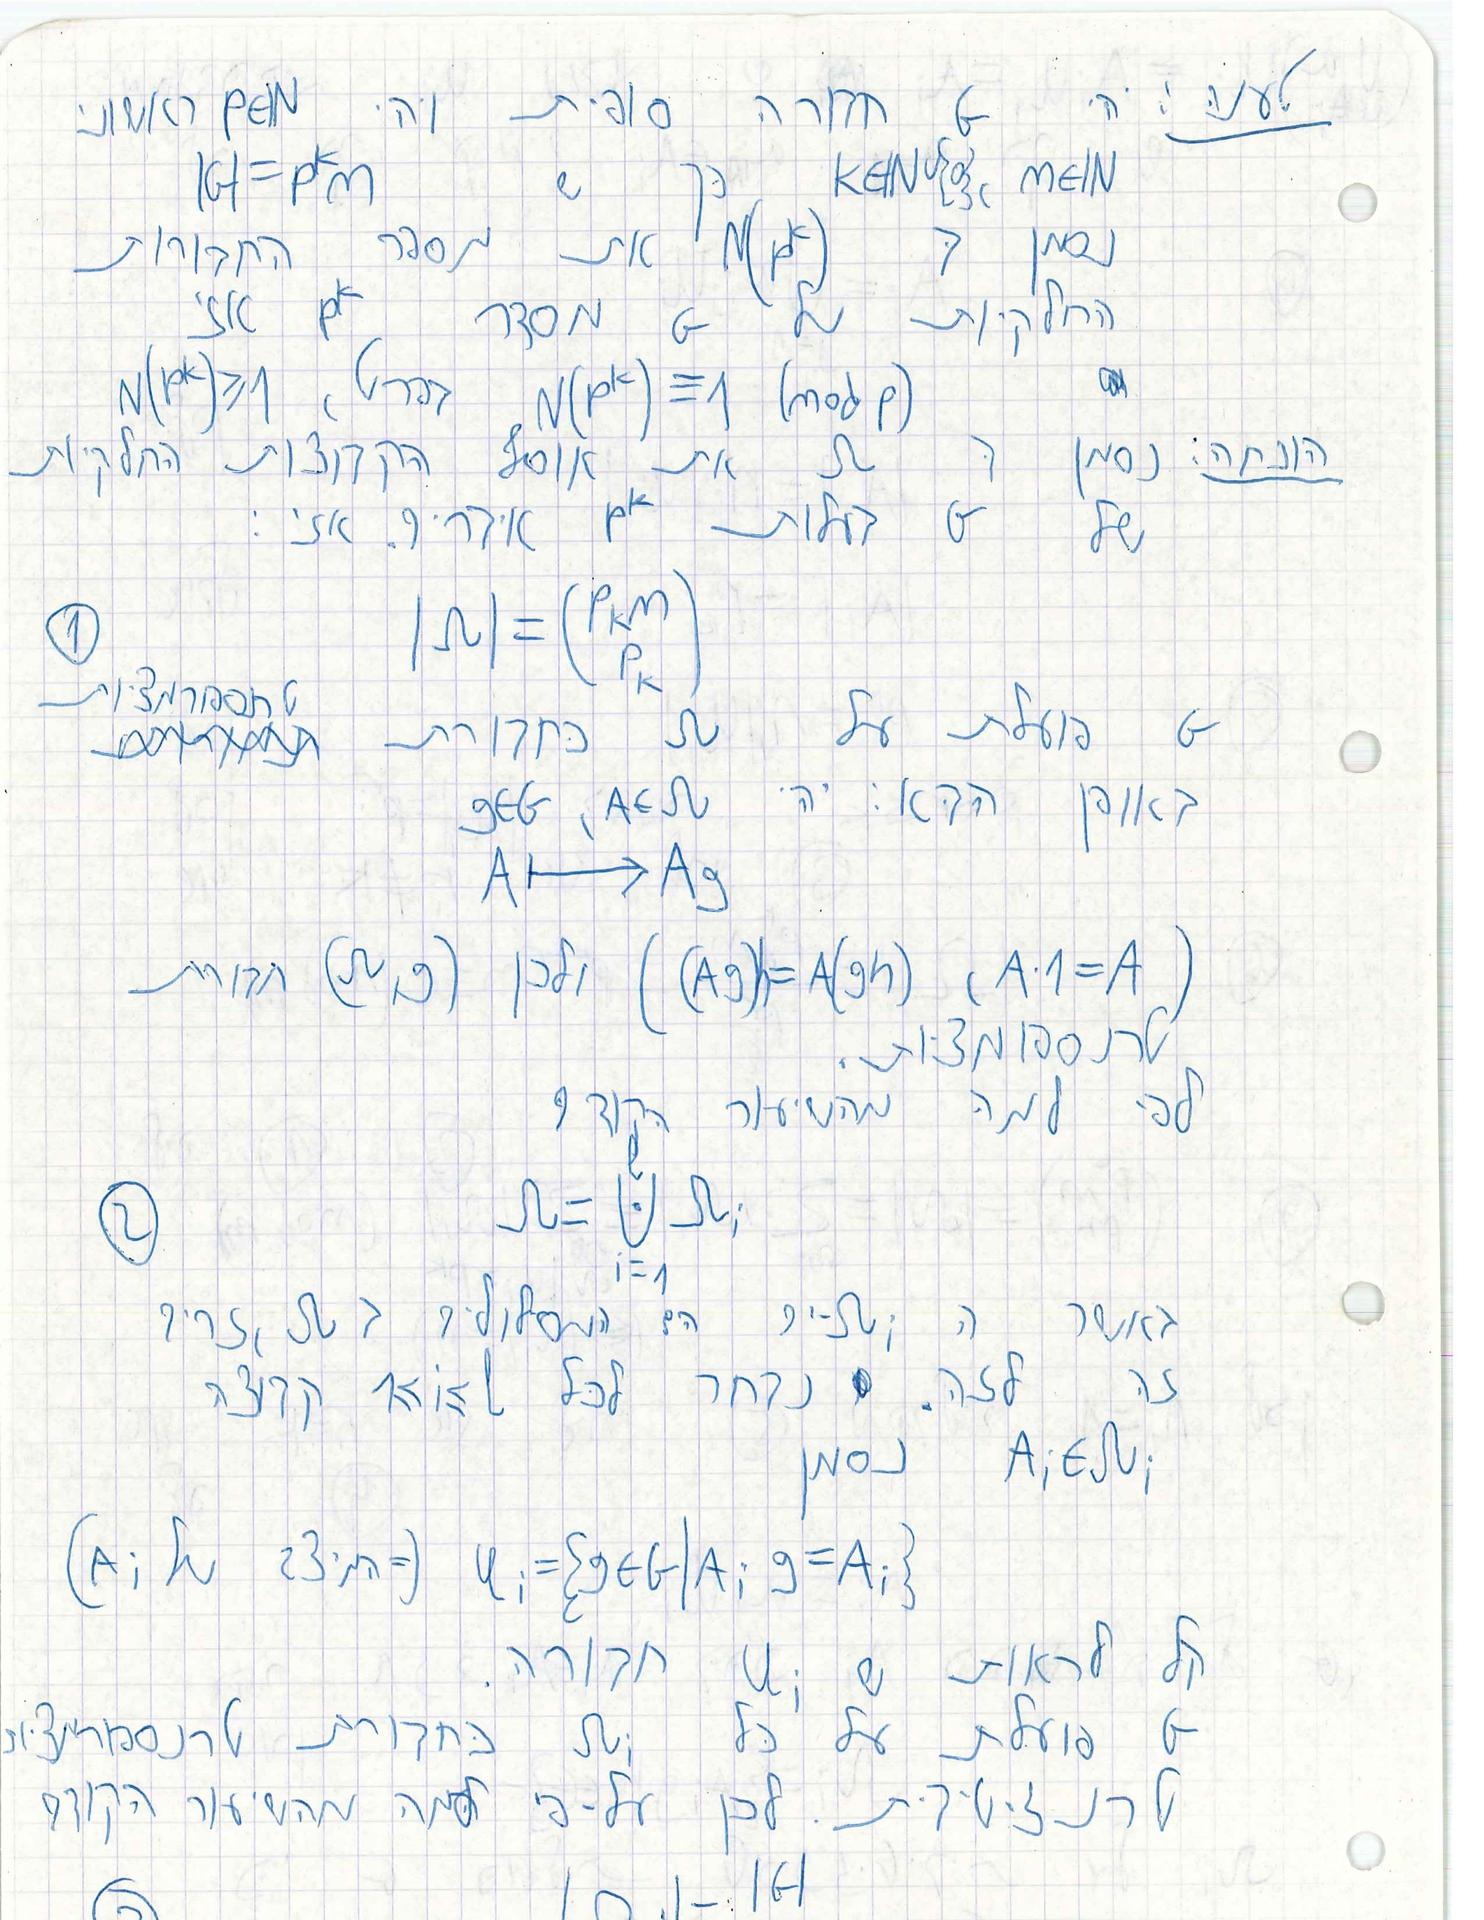 טענה: יהי G חבורה סופית ויהי p∈ℕ ראשוני
m∈ℕ k∈ℕ כך ש |G|=p^k m
נסמן ב N(p^k) את מספר החבורות
החלקיות של G מסדר p^k אזי
N(p^k)≡1 (mod p) בפרט, N(p^k)≥1
הוכחה: נסמן ב Ω את אוסף הקבוצות החלקיות
של G בעלות p^k איברים. אזי:
① |Ω|=(p^k m / p^k)
טרנספורמציות
G פועלת על Ω כחבורת
באופן הבא: יהי A∈Ω, g∈G
A ↦ Ag
((Ag)h=A(gh), A·1=A) ולכן (Ω,G) חבורת
טרנספומציות.
לפי למה מהשיעור הקודם
② Ω=⋃_{i=1}^{l} Ω_i
כאשר ה Ω_i-ים הם המסלולים ב Ω, זרים
זה לזה. נבחר לכל 1≤i≤l קבוצה
A_i∈Ω_i נסמן
U_i={g∈G|A_i g=A_i} (=המיצב של A_i)
קל לראות ש U_i חבורה.
G פועלת על כל Ω_i כחבורת טרנספורמציות
טרנזיטיבית. לכן על-פי למה מהשיעור הקודם